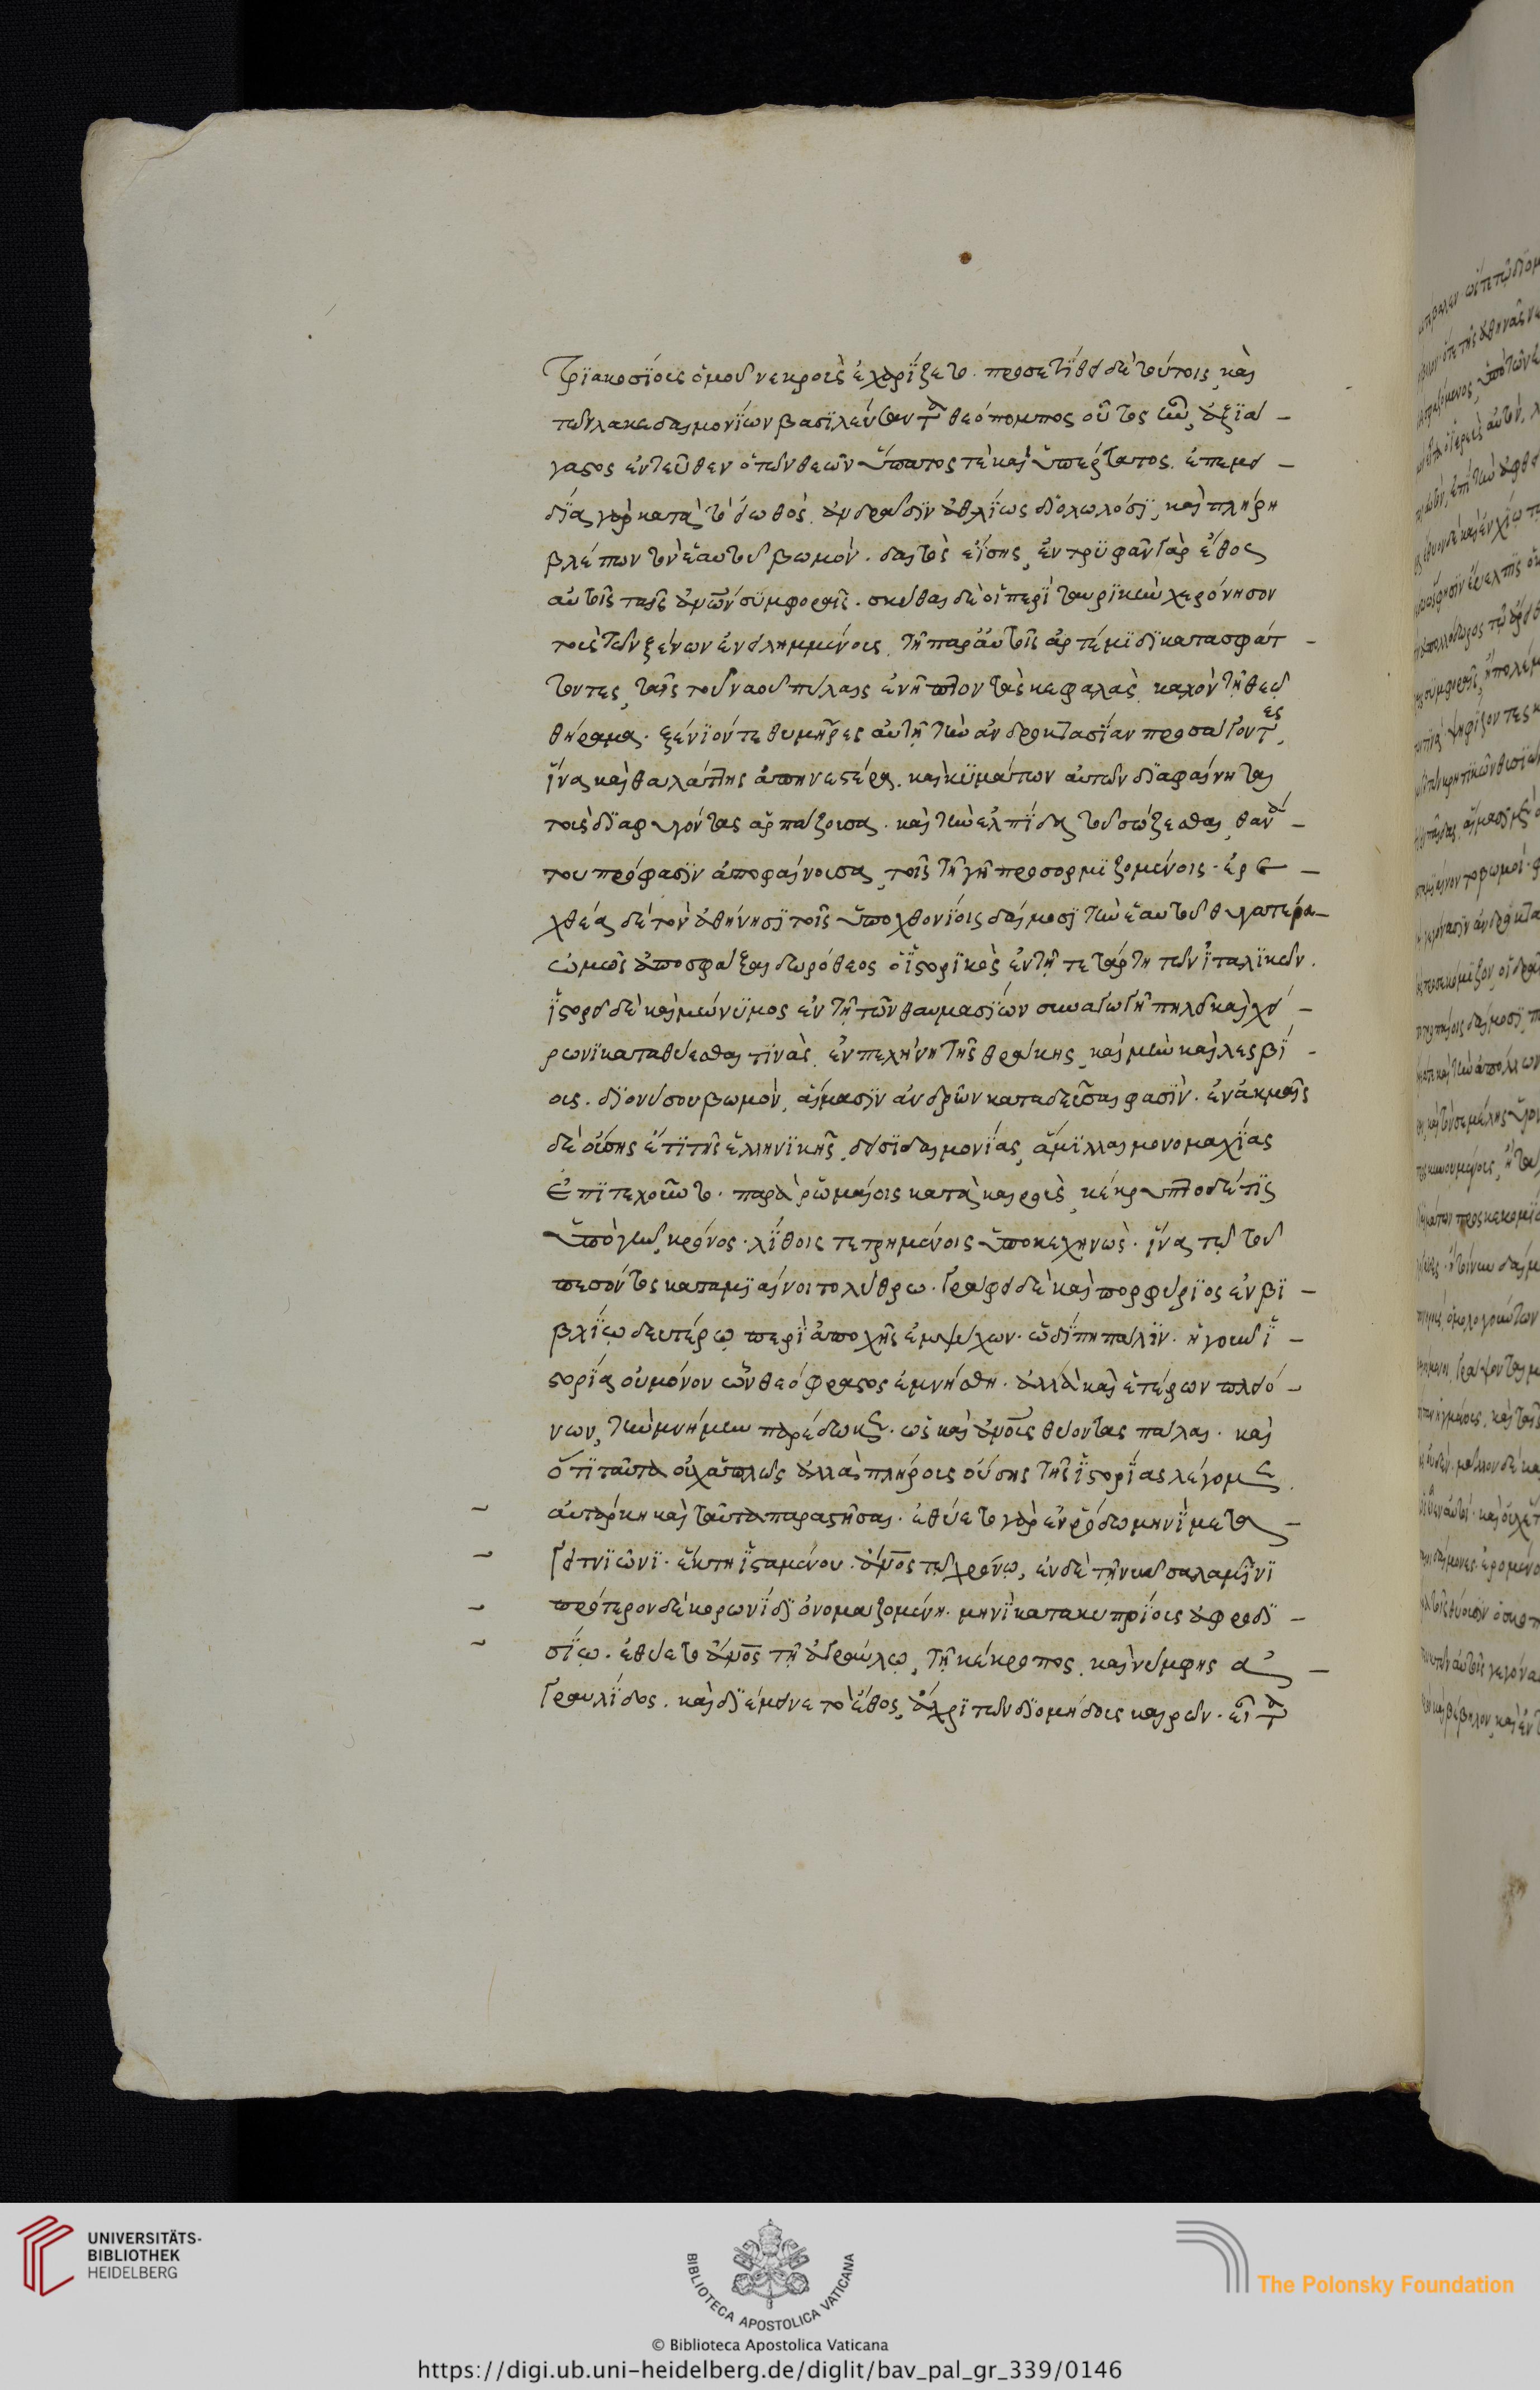 τριακοσίοις ὁμοῦ νεκροῖς ἐχαρίζετο. προσετίθει δὲ τούτοις καὶ
τῶν λακεδαιμονίων βασιλεύοντα θεόπομπος οὗτος ἦν, ἀξιά-
γαστος ἐντεῦθεν ὁ τῶν θεῶν ὕπατος τὲ καὶ ὑπέρτατος. ἐπεμει-
δία γὰρ κατὰ τὸ εἰωθὸς ἀνδράσιν ἀθλίως διολωλόσι, καὶ πλήρη
βλέπων τὸν ἑαυτοῦ βωμὸν. δαιτὸς ἐΐσης, ἐντρυφᾶν γὰρ ἔθος
αὐτοῖς ταῖς ἀνων συμφοραῖς. σκύθαι δὲ οἱ περὶ ταυρικὴν χερόνησον
τοὺς τῶν ξένων ἐνειλημμένους, τῇ παρ' αὐτοῖς ἀρτέμιδι κατασφάτ-
τοντες, ταῖς τοῦ ναοῦ πύλαις ἐνῆπτον τὰς κεφαλὰς, καλὸν τῇ θεῷ
θήραμα. ξένιόν τε θυμῆρες αὐτῇ τὴν ἀνδροκτασίαν προσάγοντες,
ἵνα καὶ θαλάττης ἀπηνεστέρα, καὶ κυμάτων αὐτῶν διαφαίνηται
τοὺς διαφυγόντας ἁρπάζουσα. καὶ τὴν ἐλπίδα τοῦ σώζεσθαι, θανά-
του πρόφασιν ἀποφαίνουσα, τοῖς τῇ γῇ προσορμιζομένοις. ἐρε-
χθέα δὲ τὸν ἀθήνησι τοῖς ὑποχθονίοις δαίμοσι τὴν ἑαυτοῦ θυγατέρα
ὠμῶς ἀποσφάξαι δωρόθεος ὁ ἱστορικὸς ἐν τῇ τετάρτη τῶν ἰταλικῶν.
ἱστορεῖ δὲ καὶ μώνυμος ἐν τῇ τῶν θαυμασίων συναγωγῇ πηλεῖ καὶ χεί-
ρωνι καταθύεσθαι τινὰς, ἐν πεχήνη τῆς θράκης, καὶ μὴν καὶ λεσβί-
οις. διονύσου βωμὸν, αἵμασιν ἀνδρῶν καταδεῦσαι φασὶν. ἐν ἀκμαῖς
δὲ οὔσης ἔτι τῆς ἑλληνικῆς, δεισιδαιμονίας, ἅμιλλαι μονομαχίας
ἐπιτεχοῦντο. παρὰ ῥωμαίοις κατὰ καιροὺς, κέκρυπτο δέ τις
ὑπὸ γῆν, κρόνος. λίθοις τετρημένοις ὑποκεχηνὼς. ἵνα τῷ τοῦ
πεσόντος καταμιαίνοιτο λύθρω. γράφει δὲ καὶ πορφύριος ἐν βι-
βλίῳ δευτέρῳ περὶ ἀποχῆς ἐμψύχων. ὡδί πη πάλιν. ἡ γοῦν ἱ-
στορία οὐ μόνον ὧν θεόφραστος ἐμνήσθη. ἀλλὰ καὶ ἑτέρων πλειό-
νων, τὴν μνήμην παρέδωκε. ὡς καὶ ἀνους θύοντας πάλαι. καὶ
ὅτι ταῦτα οὐχ ἁπλῶς ἀλλὰ πλήρους οὔσης τῆς ἱστορίας λέγομεν
αὐτάρκη καὶ ταῦτα παραστῆσαι. ἐθύετο γὰρ ἐν ῥόδω μηνὶ μετα-
γειτνιῶνι. ἕκτη ἱσταμένου. ἀνος τῷ κρόνῳ, ἐν δὲ τῇ νῦν σαλαμῖνι
πρότερον δὲ κορωνίδι ὀνομαζομένη. μηνὶ κατα κυπρίους ἀφροδι-
σίῳ. ἐθύετο ἀνος τῇ ἀγραύλῳ, τῇ κέκροπος, καὶ νύμφης ἀ-
γραυλίδος. καὶ διέμεινε τὸ ἔθος, ἄχρι τῶν διομήδους καιρῶν. εἶτα
UNIVERSITÄTS-
BIBLIOTHEK
HEIDELBERG
BIBLIOTECA APOSTOLICA VATICANA
The Polonsky Foundation
© Biblioteca Apostolica Vaticana
https://digi.ub.uni-heidelberg.de/diglit/bav_pal_gr_339/0146